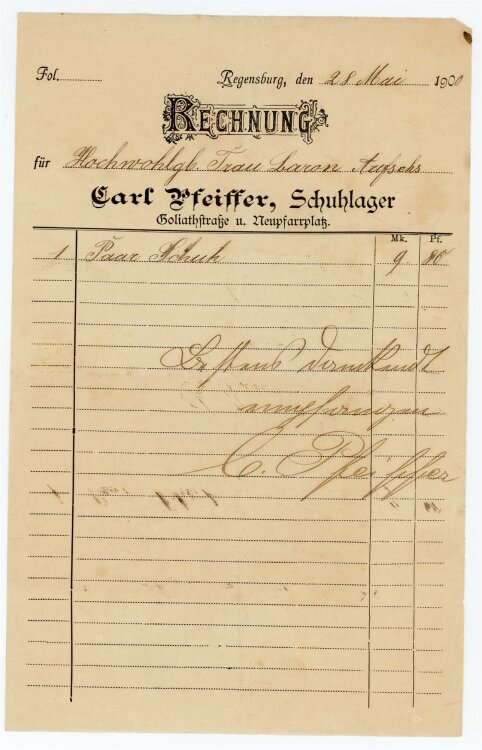 Fol.
Regensburg, den 28 Mai 1900
RECHNUNG
für Hochwohlgb. Frau Baron Aufsehs
Carl Pfeiffer, Schuhlager
Goliathstraße u. Neupfarrplatz.
Mk. Pf.
1 Paar Schuh 9 80
Bestens dankendt
empfangen
C. Pfeiffer